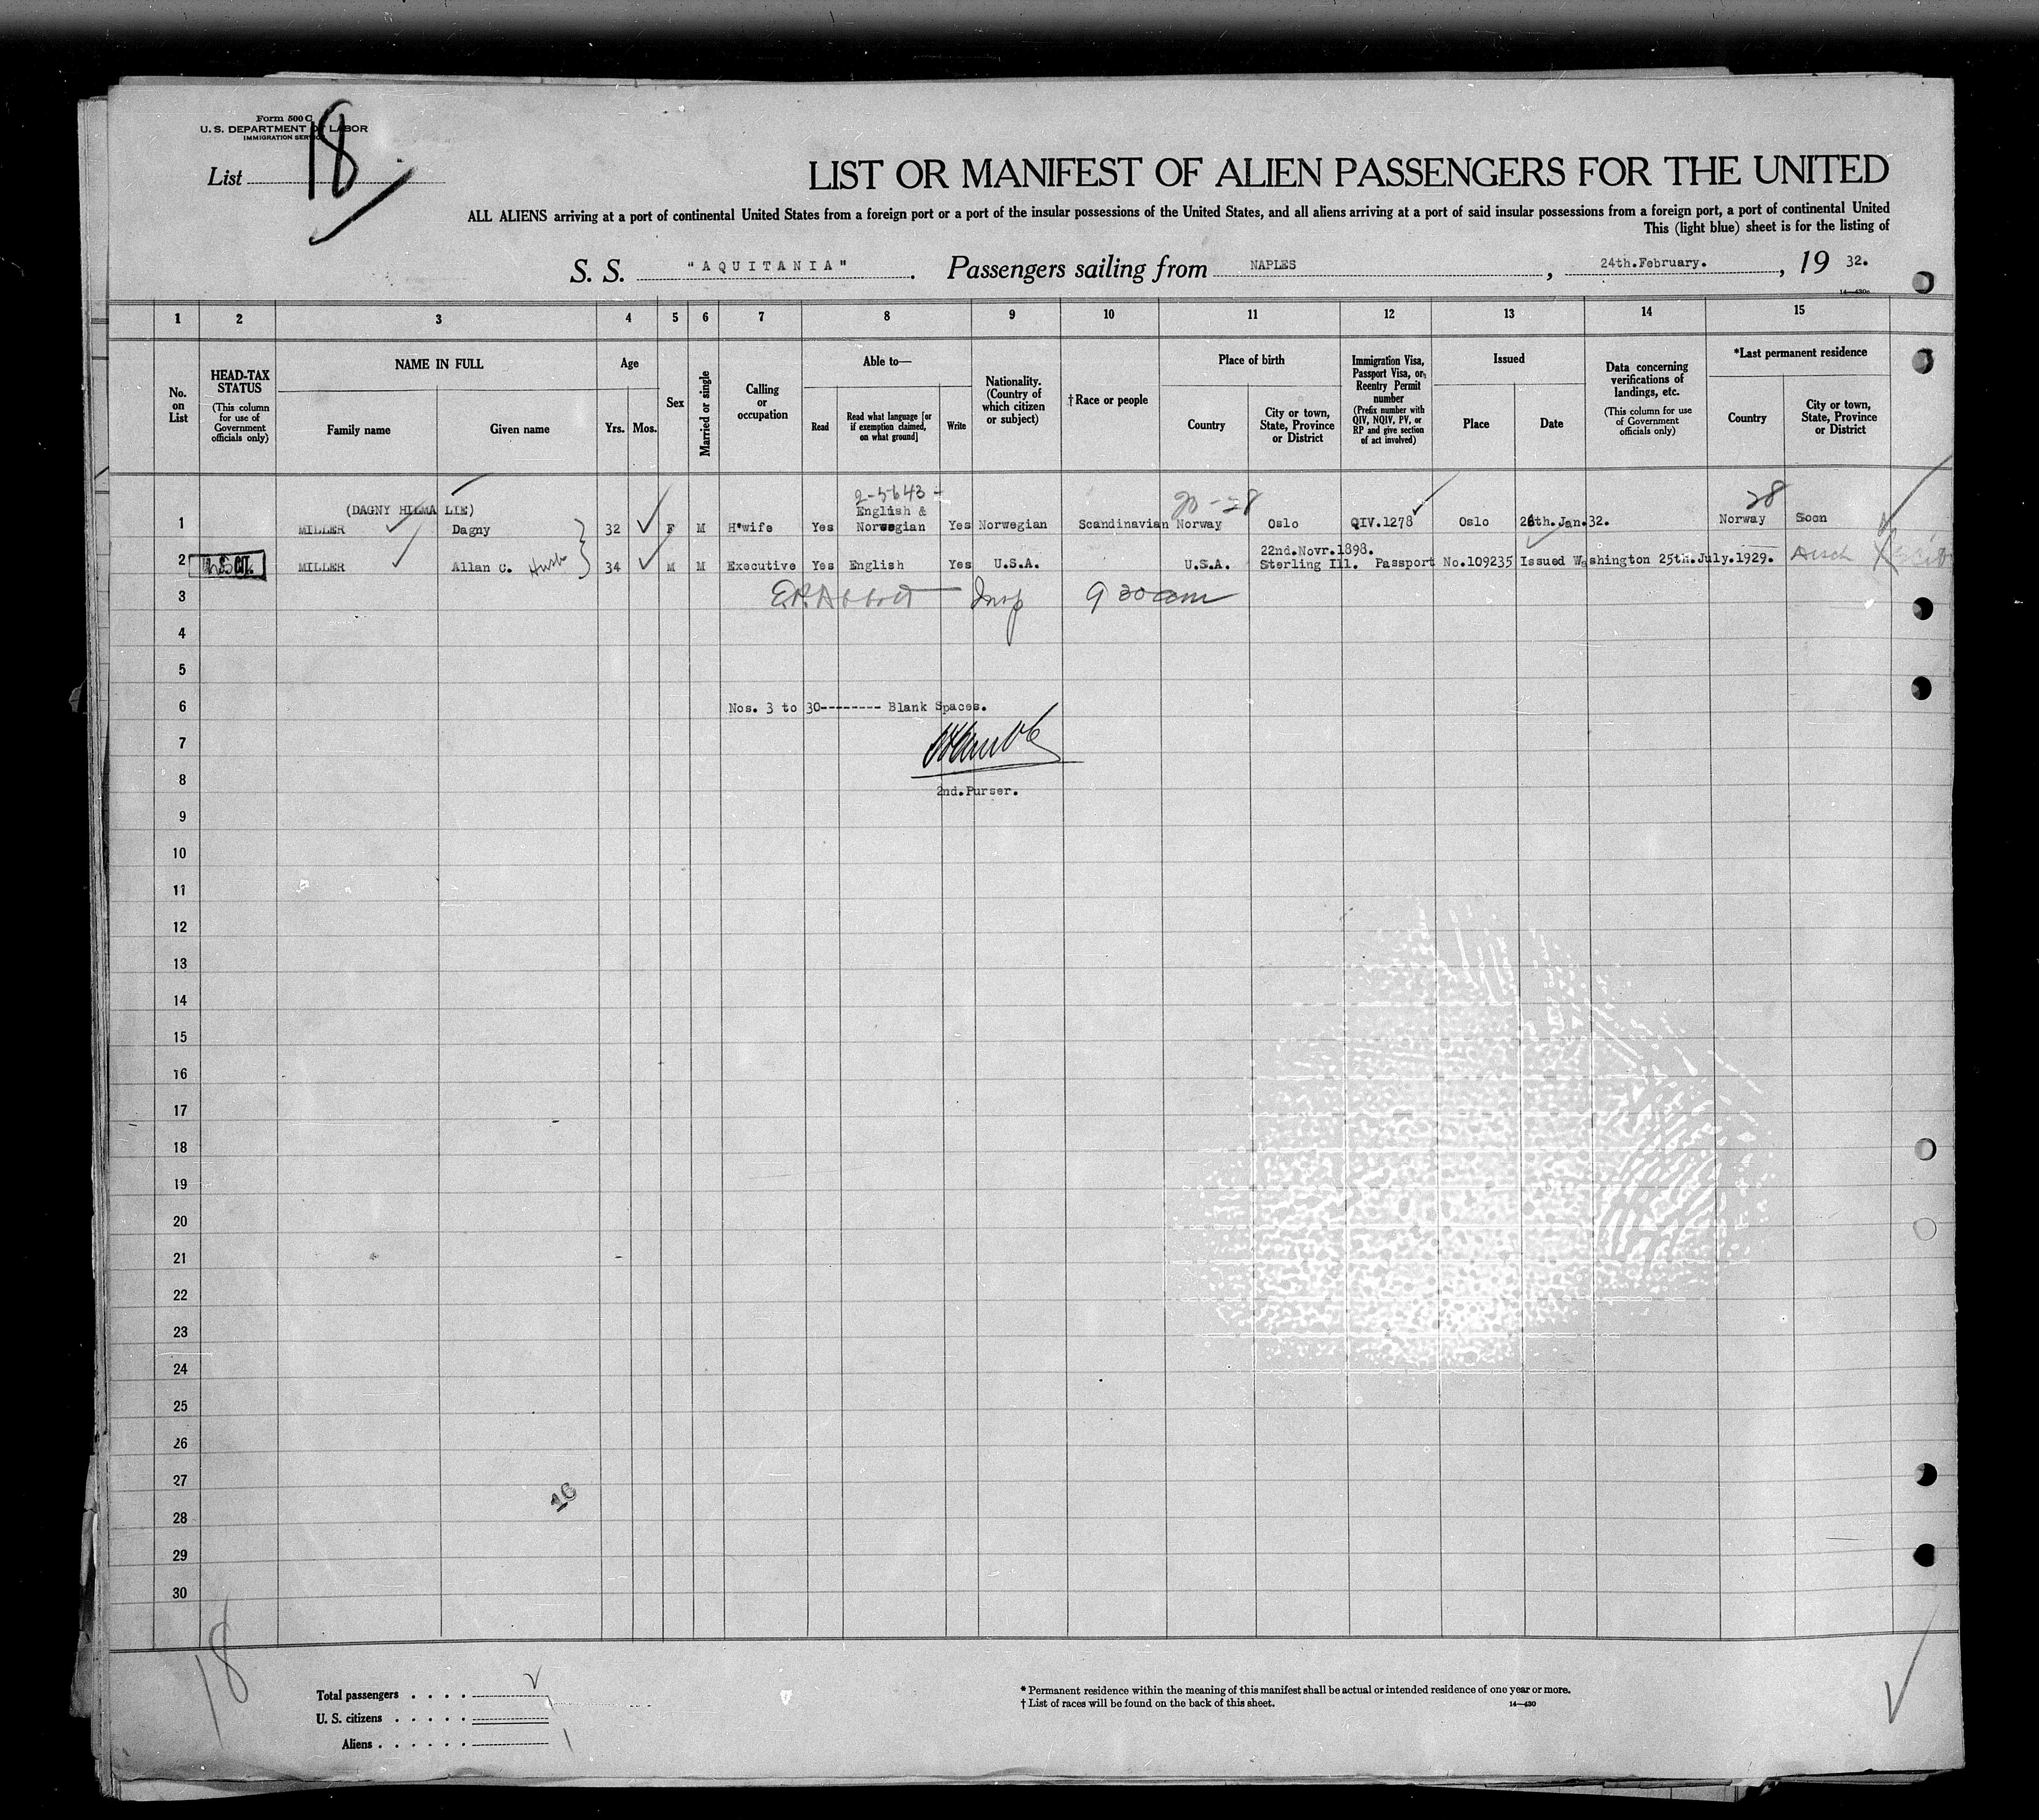 Form 500 C
U. S. DEPARTMENT OF LABOR
IMMIGRATION SERVICE
List 18
LIST OR MANIFEST OF ALIEN PASSENGERS FOR THE UNITED
ALL ALIENS arriving at a port of continental United States from a foreign port or a port of the insular possessions of the United States, and all aliens arriving at a port of said insular possessions from a foreign port, a port of continental United
This (light blue) sheet is for the listing of
S. S. "AQUITANIA" . Passengers sailing from NAPLES , 24th.February. , 19 32.
14—430c
1 2 3 4 5 6 7 8 9 10 11 12 13 14 15
No. on List
HEAD-TAX STATUS (This column for use of Government officials only)
NAME IN FULL
Family name Given name
Age
Yrs. Mos.
Sex
Married or single
Calling or occupation
Able to—
Read Read what language [or if exemption claimed, on what ground] Write
Nationality. (Country of which citizen or subject)
†Race or people
Place of birth
Country City or town, State, Province or District
Immigration Visa, Passport Visa, or Reentry Permit number (Prefix number with QIV, NQIV, PV, or RP and give section of act involved)
Issued
Place Date
Data concerning verifications of landings, etc. (This column for use of Government officials only)
*Last permanent residence
Country City or town, State, Province or District
2-5643 - 20-28 28
(DAGNY HILMA LIE) English &
1 MILLER Dagny 32 F M H'wife Yes Norwegian Yes Norwegian Scandinavian Norway Oslo QIV.1278 Oslo 26th.Jan.32. Norway Soon
22nd.Novr.1898.
2 U.S. CIT. MILLER Allan C. Husb 34 M M Executive Yes English Yes U.S.A. U.S.A. Sterling Ill. Passport No.109235 Issued Washington 25th.July.1929.
3 Insp 9 30 am
4
5
6 Nos. 3 to 30-------- Blank Spaces.
7
8
2nd.Purser.
9
10
11
12
13
14
15
16
17
18
19
20
21
22
23
24
25
26
27
16
28
29
30
18
Total passengers . . . . 2
U. S. citizens . . . . . 1
Aliens . . . . . . 1
* Permanent residence within the meaning of this manifest shall be actual or intended residence of one year or more.
† List of races will be found on the back of this sheet. 14—430